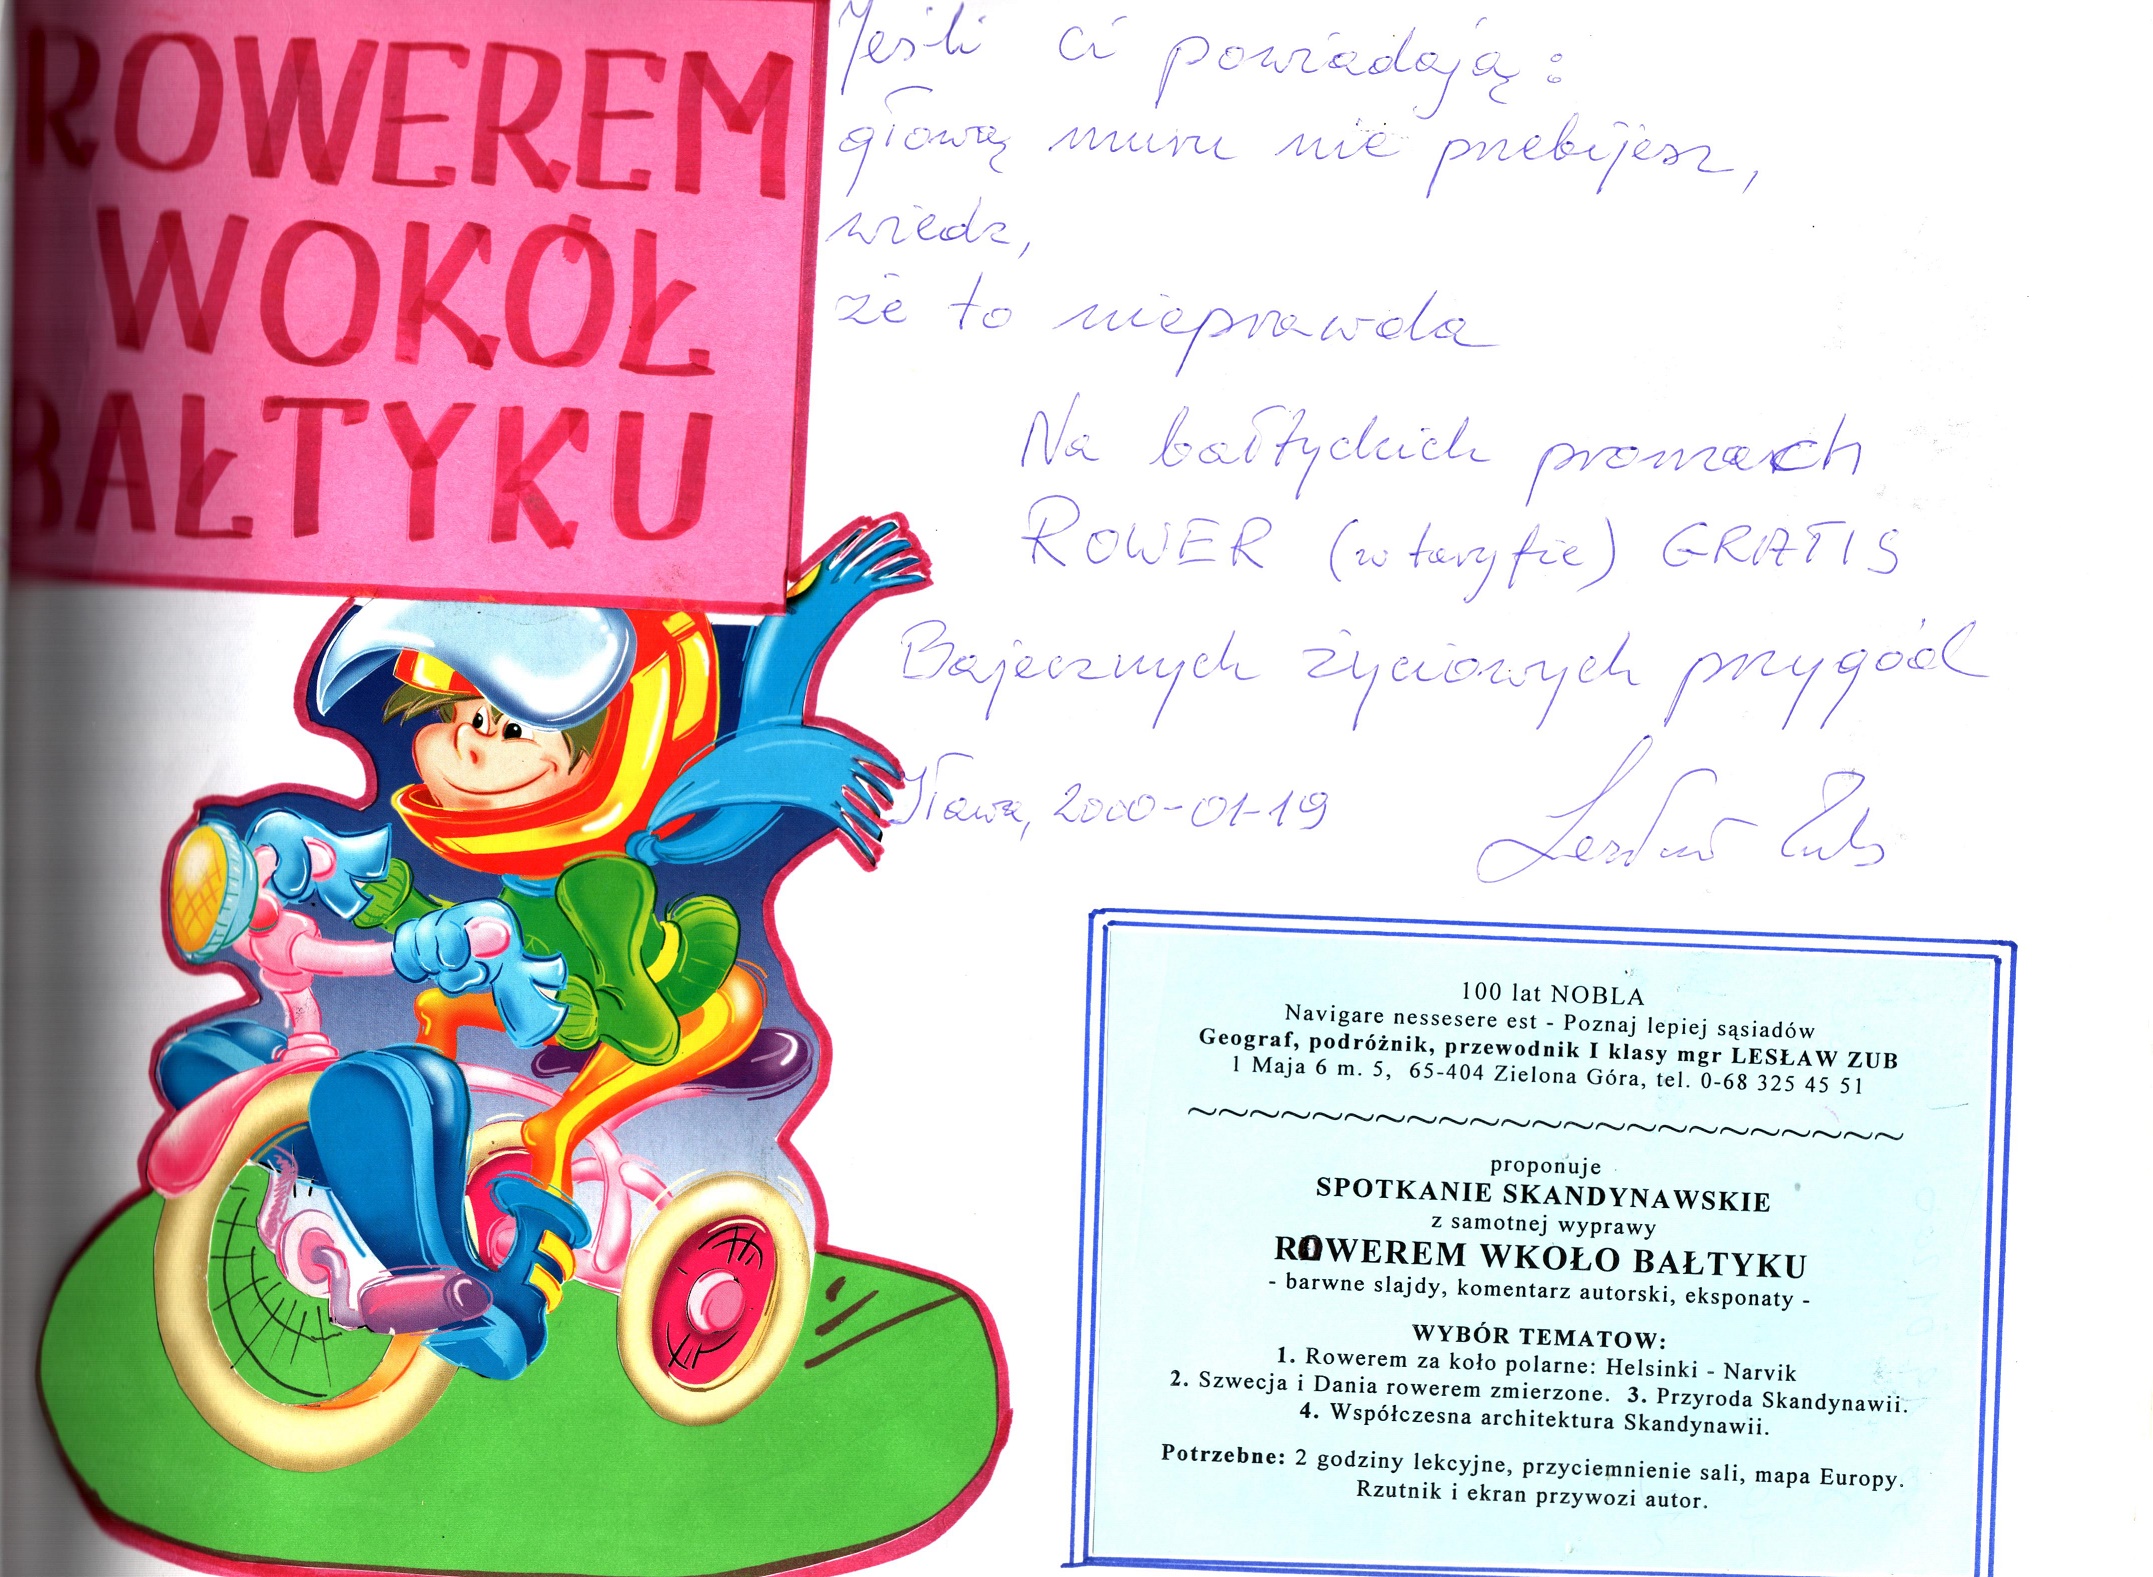 ROWEREM
WOKÓŁ
BAŁTYKU
Jeśli ci powiadają:
głową muru nie przebijesz,
wiedz,
że to nieprawda
Na bałtyckich promach
ROWER (w taryfie) GRATIS
Bajecznych życiowych przygód
Iława, 2000-01-19
Lesław Zub
100 lat NOBLA
Navigare nessesere est - Poznaj lepiej sąsiadów
Geograf, podróżnik, przewodnik I klasy mgr LESŁAW ZUB
1 Maja 6 m. 5, 65-404 Zielona Góra, tel. 0-68 325 45 51
~~~~~~~~~~~~~~~~~~~~~~~
proponuje
SPOTKANIE SKANDYNAWSKIE
z samotnej wyprawy
ROWEREM WKOŁO BAŁTYKU
- barwne slajdy, komentarz autorski, eksponaty -
WYBÓR TEMATOW:
1. Rowerem za koło polarne: Helsinki - Narvik
2. Szwecja i Dania rowerem zmierzone. 3. Przyroda Skandynawii.
4. Współczesna architektura Skandynawii.
Potrzebne: 2 godziny lekcyjne, przyciemnienie sali, mapa Europy.
Rzutnik i ekran przywozi autor.